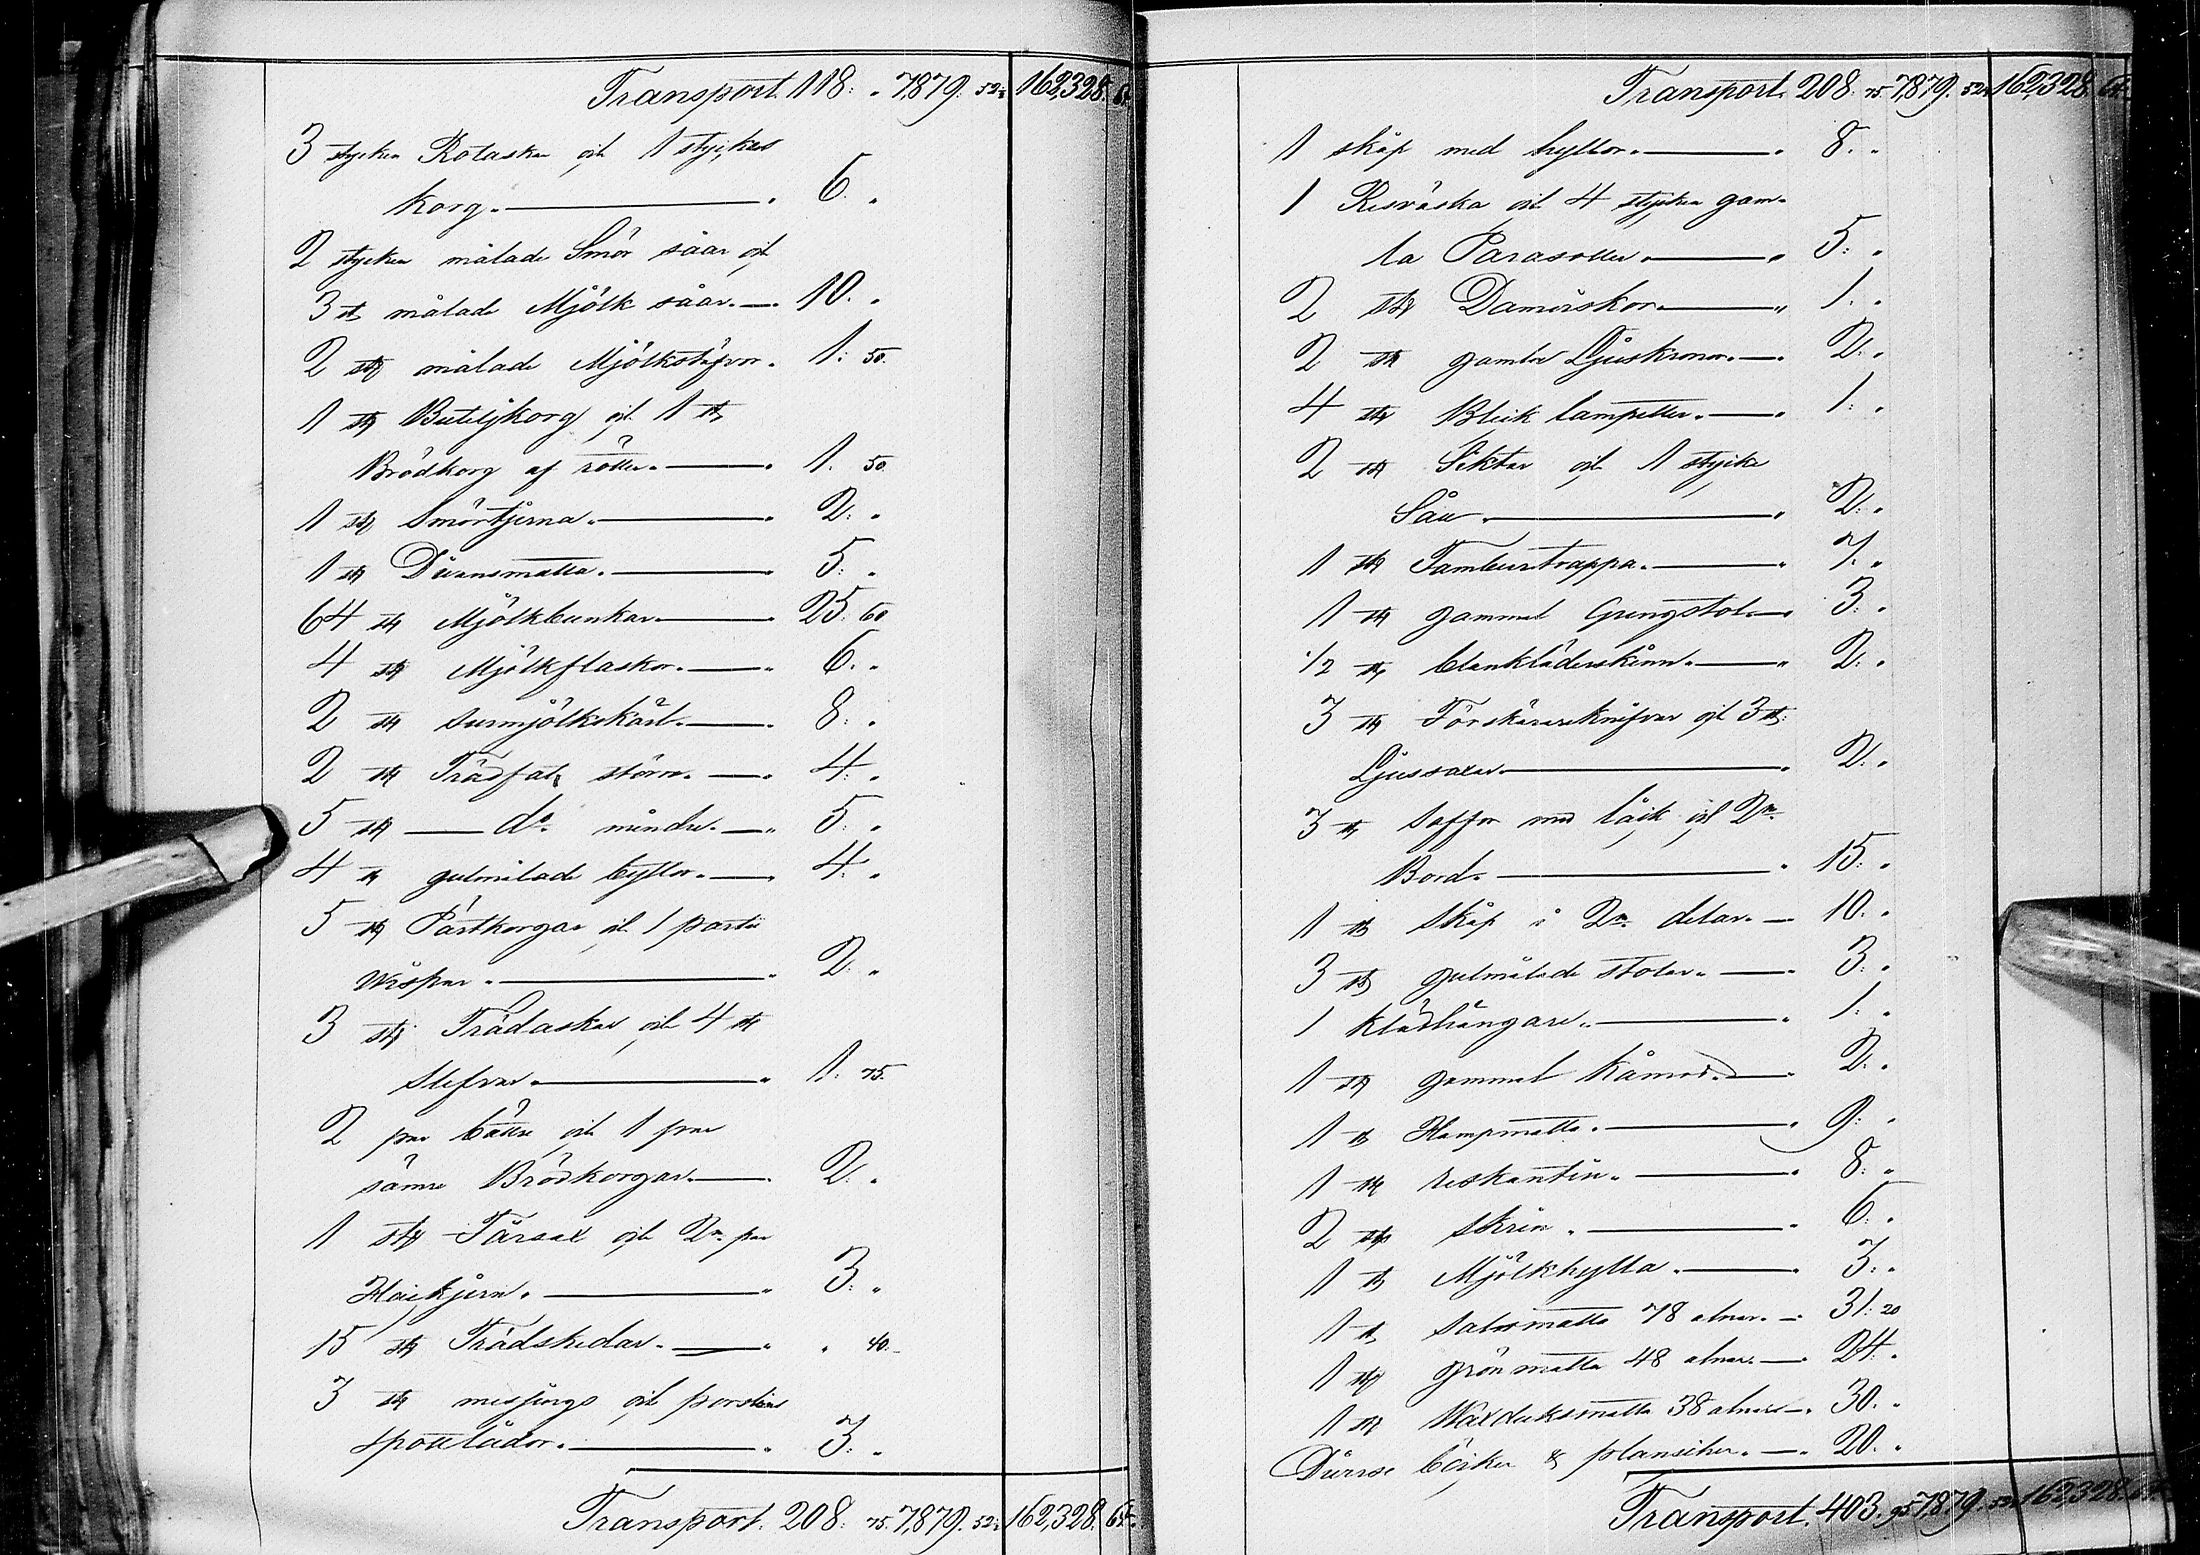 Transport. 118: „ 7,879. 52. 162,328. 64.
3 stycken Rotaskar och 1 styckes
korg. — „ 6. „
2 stycken målade Smör såar och
3 st målade Mjölk såar. — „ 10. „
2 st målade Mjölkstäfvor. 1: 50.
1 st Buteljkorg och 1 st
Brödkorg af rötter. — „ 1. 50.
1 st Smörtjerna. — „ 2: „
1 st Divansmatta. — „ 5: „
64 st Mjölkbunkar — 25: 60
4 st Mjölkflaskor. — „ 6. „
2 st surmjölkskärl. — „ 8: „
2 st Trädfat större. — „ 4: „
5 st — do mindre. — „ 5: „
4 st gulmålade byttor. — „ 4: „
5 st Pärtkorgar och 1 parti
wispar. — „ 2: „
3 st Trädaskar och 4 st
slefvar. — „ 1: 75.
2 par bättre och 1 par
sämre Brödkorgar. — 2: „
1 st Fårsax och 2ne par
Häckjern. — „ 3: „
15 st Trädskedar. — „ „ 40.
3 st messings och porslins
spottlådor. — „ 3: „
Transport. 208: 75. 7,879. 52. 162,328. 64.
Transport. 208. 75 7,879. 52. 162,328. 64.
1 skåp med hyllor. — „ 8. „
1 Resväska och 4 stycken gam-
la Parasoller. — „ 5: „
2 st — „ 1: „
2 st gamla Ljuskronor. — „ 2: „
4 st Bleck lampetter. — „ 1: „
2 st Siktar och 1 stycke
Såll. — „ 2: „
1 st Tamburtrappa. — „ 7. „
1 st gammal Gungstol — „ 3: „
1/2 st blankläderskinn. — „ 2: „
3 st Förskärareknifvar och 3 st
Ljussaxar — „ 2: „
3 st Soffor med låck och 2ne
Bord. — „ 15: „
1 st Skåp i 2ne delar. — 10. „
3 st gulmålade stolar. — „ 3: „
1 klädhängare. — „ 1: „
1 st gammal kåmod. — „ 2: „
1 st Hampmatta. — „ 9: „
1 st — „ 8: „
2 st skrin. — „ 6: „
1 st Mjölkhylla. — „ 3: „
1 st salsmatta 78 alnar. — 31: 20
1 st grön matta 48 alnar. — „ 24. „
1 st Waxduksmatta 38 alnar — „ 30. „
Diverse böcker & planscher. — „ 20. „
Transport. 403. 95 7,879. 52. 162,328. 64.